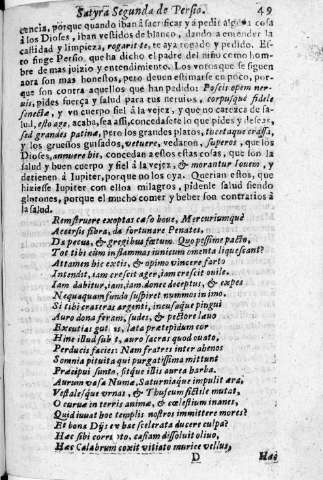 Satyra Segunda de Persio. 49
cencia, porque quando iban â sacrificar y â pedir alguna cosa
â los Dioses, iban vestidos de blanco, dando a entender la
castidad y limpieza, rogarit te, te aya rogado y pedido. Es-
to finge Persio, que ha dicho el padre del niño como hom-
bre de mas juizio y entendimiento. Los votos que se siguen
aora son mas honestos, pero deuen estimarse en poco, por-
que son contra aquellos que han pedido: Poscis opem ner-
uis, pides fuerça y salud para tus neruios, corpusque fidele
senectæ, y vn cuerpo fiel â la vejez, y que no carezca de sa-
lud, esto age, acaba, sea assi, concedasete lo que pides y deseas,
sed grandes patinæ, pero los grandes platos, tucetaque crassa,
y los gruessos guisados, vetuere, vedaron, superos, que los
Dioses, annuere his, concedan a estos estas cosas, que son la
salud y buen cuerpo y fiel â la vejez, & morantur Iouem, y
detienen â Iupiter, porque no los oya. Querian estos, que
hiziesse Iupiter con ellos milagros, pidenle salud siendo
glotones, porque el mucho comer y beber son contrarios â
la salud.
Rem struere exoptas cæso boue, Mercuriumquè
Acersis fibra, da fortunare Penates,
Da pecus, & gregibus fœtum. Quo pessime pacto,
Tot tibi cùm in flammas iunicum omenta liquescant?
Attamen hic extis, & opimo vincere farto
Intendit, iam crescit ager, iam crescit ouile.
Iam dabitur, iam, iam: donec deceptus, & expes
Nequaquam fundo suspiret nummos in imo.
Si tibi crateras argenti, incusaque pingui
Auro dona feram, sudes, & pectore lauo
Excutias guttas, læta prætepidum cor
Hinc illud subit, auro sacras quod ouato,
Perducis facies: Nam fratres inter ahenos
Somnia pituita qui purgatissima mittunt
Præcipui sunto, sitque illis aurea barba.
Aurum vasa Numæ, Saturniaque impulit æra,
Vestalesque vrnas, & Thuscum fictile mutat,
O curuæ in terris animæ, & cœlestium inanes,
Quid iuuat hoc templis nostros immittere mores?
Et bona Dijs ex hac scelerata ducere pulpa?
Hæc sibi corrupto, casiam dissoluit oliuo,
Hæc Calabrum coxit vitiato murice vellus,
D Hæc